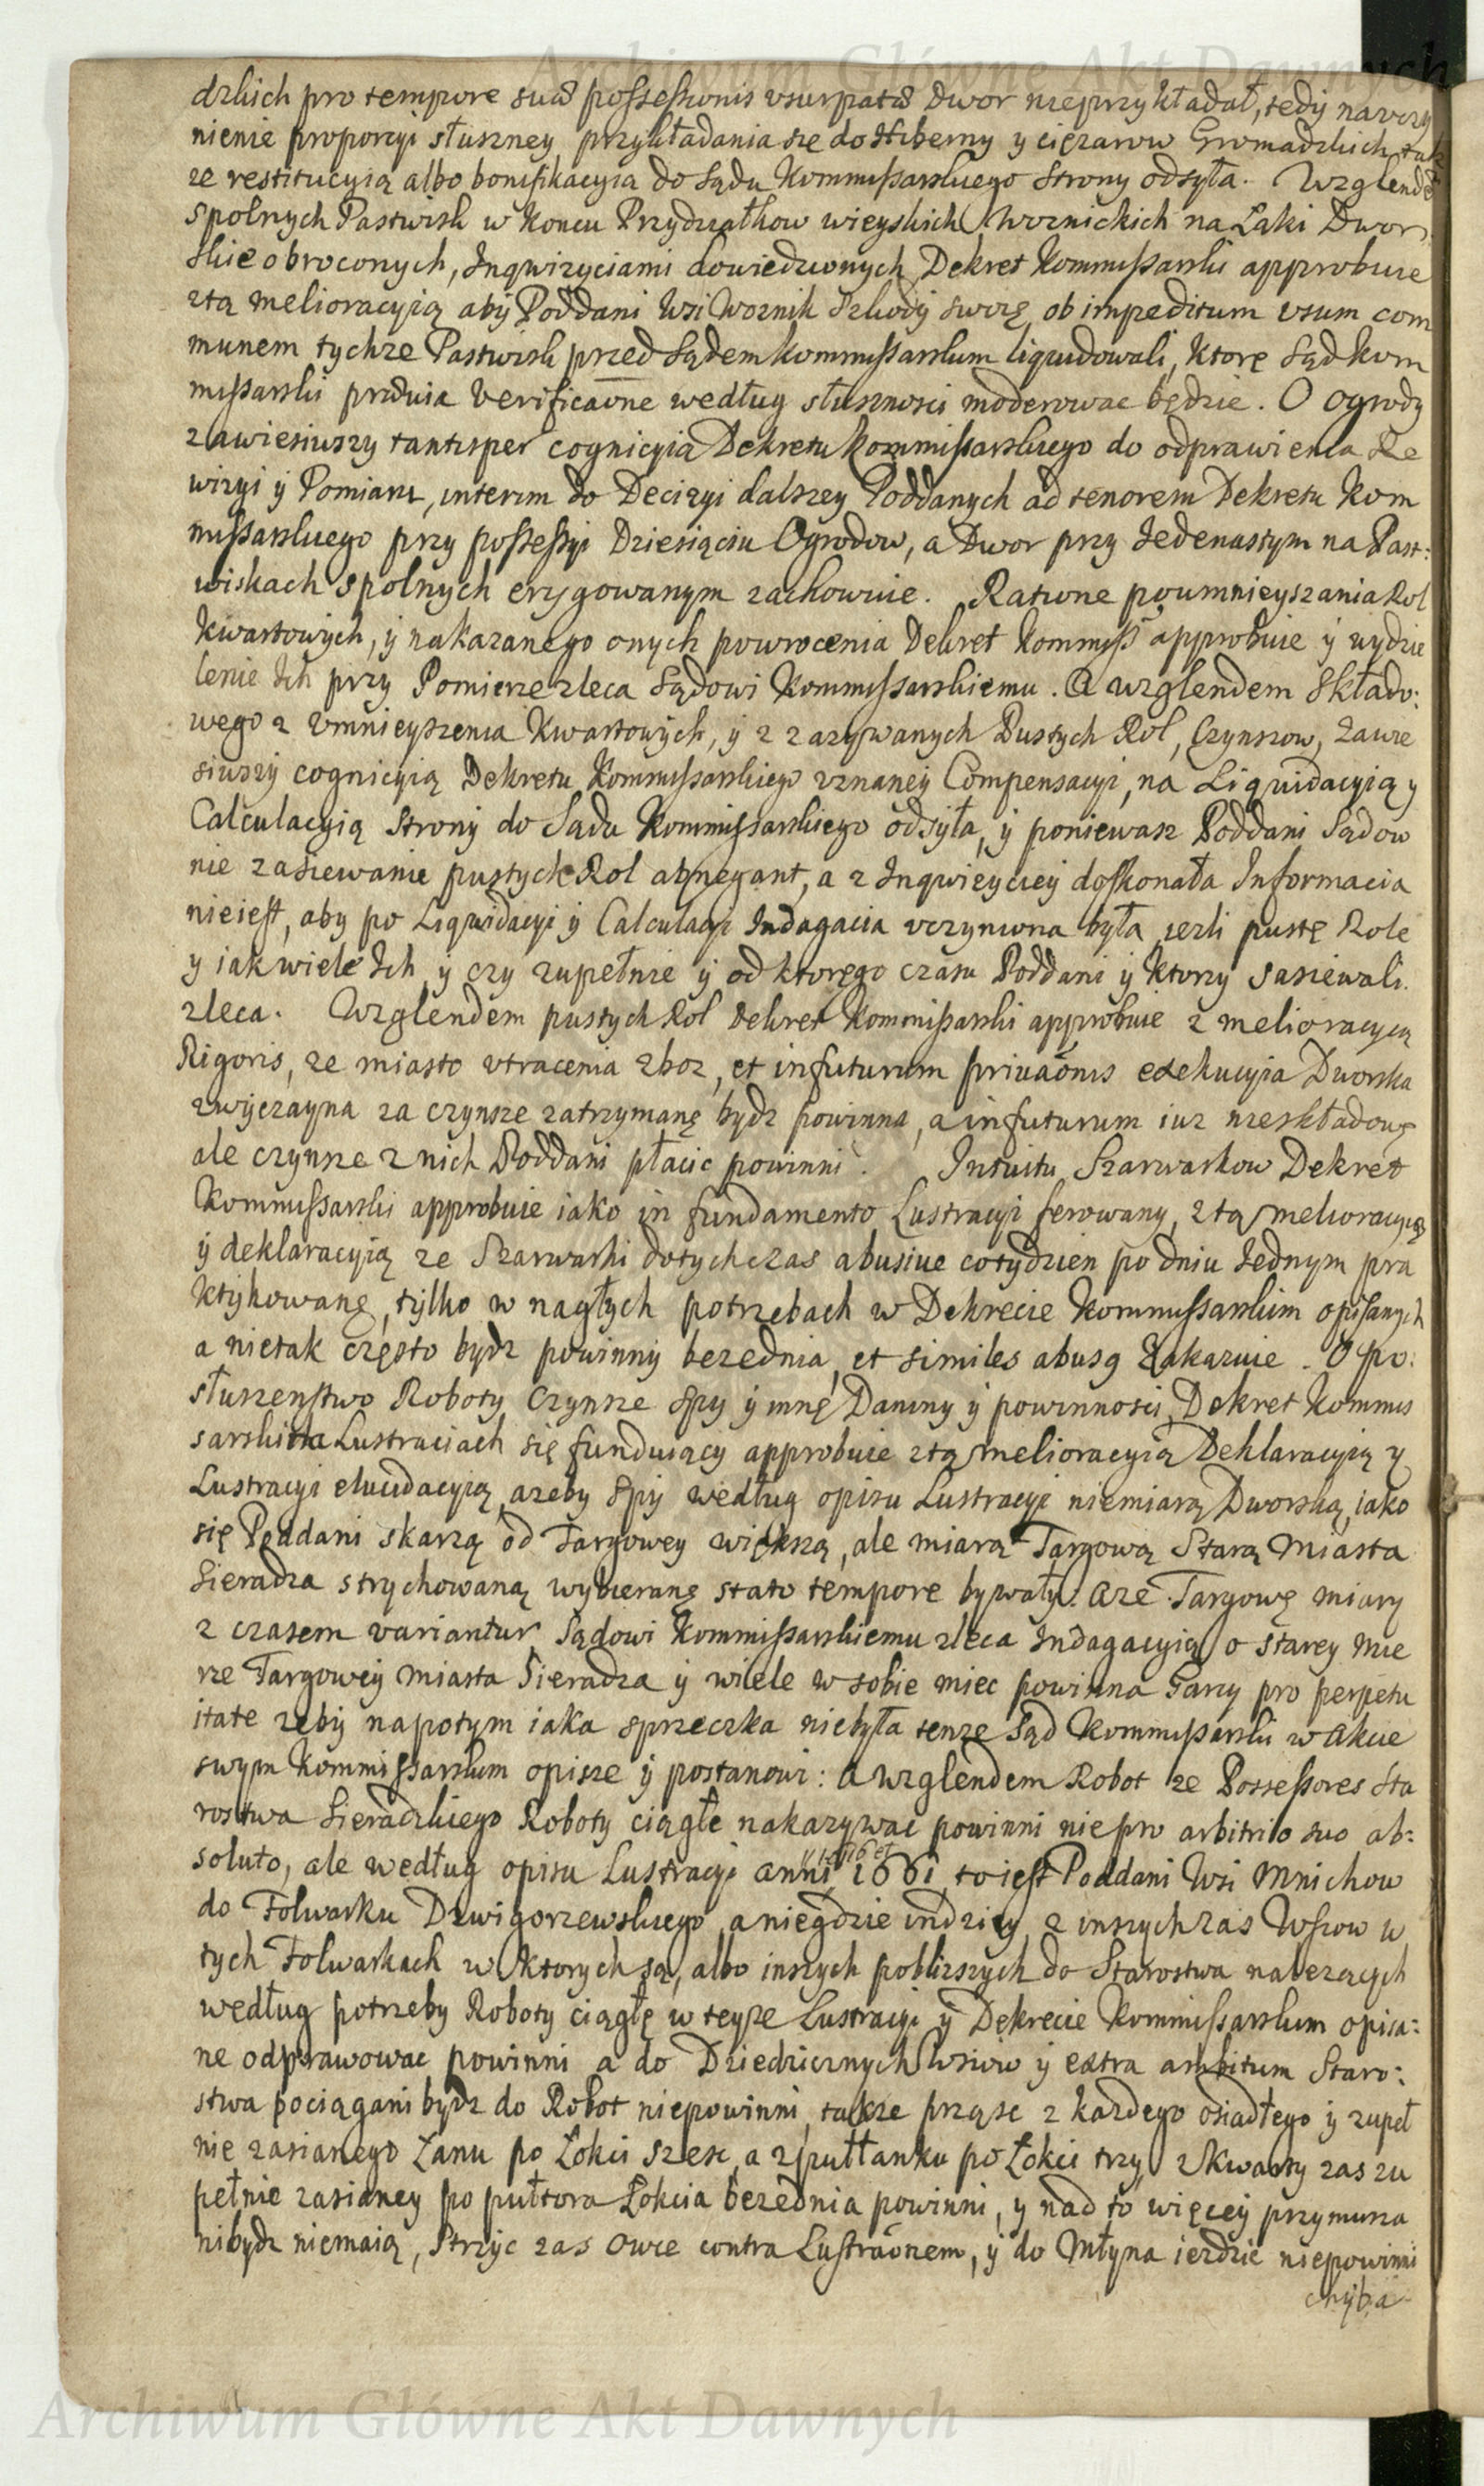 Archiwum Główne Akt Dawnych
dzkich pro tempore suæ possessionis usurpatæ Dwor nieprzykładał, tedy na uczy
nienie proporcyi słuszney przykładania się do Hiberny y cięzarow Gromadzkich tak
ze restitucyią albo bonifikacyią do Sądu Kommissarskiego Strony odsyła. Wzglende
spolnych Pastwisk w Koncu Przydziałkow wieyskich Woznickich na Łąki Dwor
skie obroconych, Inqwizyciami dowiedzionych Dekret Kommissarski approbuie
z tą melioracyią aby Poddani Wsi Woznik Szkody swoię ob impeditum usum com
munem tychze Pastwisk przed Sądem Kommissarskim liquidowali, ktorę Sąd Kom
missarski prævia Verificaõne według słusznosci moderowac będzie. O Ogrody
zawiesiwszy tantisper cognicyią Dekretu Kommissarskiego do odprawienia Re
wizyi y Pomiaru, interim do Decizyi dalszey Poddanych ad tenorem Dekretu Kom
missarskiego przy possessyi Dziesiąciu Ogrodow, a Dwor przy Iedenastym na Past:
wiskach spolnych erygowanym zachowuie. Ratione poumnieyszania Rol
Kwartowych, y nakazanego onych powrocenia Dekret Kommiss approbuie y wydzie
lenie Ich przy Pomierze zleca Sądowi Kommissarskiemu. A wzglendem Składo:
wego z umnieyszenia Kwartowych, y z zazywanych Pustych Rol, Czynszow, zawie
siwszy cognicyią Dekretu Kommissarskiego uznaney Compensacyi, na Liquidacyią y
Calculacyią Strony do Sądu Kommissarskiego odsyła, y poniewasz Poddani Sądow
nie zasiewanie pustych Rol abnegant, a z Inqwizyciey doskonała Informacia
nieiest, aby po Liquidacyi y Calculacyi Indagacia uczyniona była iezli pustę Role
y iakwiele Ich y czy zupełnie y od ktorego czasu Poddani y Ktorzy zasiewali.
zleca. Wzglendem pustych Rol Dekret Kommissarski approbuie z melioracyią
Rigoris, ze miasto utracenia zboz, et infuturum privaõnis exekucyia Dworska
zwyczayna za czynsze zatrzymanę bydz powinna, a infuturum iuz nieskładowę
ale czynsze z nich Poddani płacic powinni. Intuitu Szarwarkow Dekret
Kommissarski approbuie iako in fundamento Lustracyi ferowany, z tą melioracyią
y deklaracyią ze Szarwarki dotychczas abusive cotydzien po dniu Iednym pra
ktykowanę, tylko w nagłych potrzebach w Dekrecie Kommissarskim opisanych
a nietak często bydz powinny bezednia, et similes abusq zakazuie. O po:
słuszenstwo Roboty Czynsze Spy y innę Daniny y powinnosci Dekret Kommis
sarski na Lustraciach się funduiący approbuie z tą melioracyią Deklaracyią y
Lustracyi elucidacyią azeby Spy według opisu Lustracyi niemiarą Dworską, iako
się Poddani skarzą od Targowey większą, ale miarą Targową Starą Miasta
Sieradza strychowaną wybieranę stato tempore bywały. A ze Targowę miary
z czasem variantur Sądowi Kommissarskiemu zleca Indagacyią o starey Mie
rze Targowey Miasta Sieradza y wiele w sobie miec powinna Garcy pro perpetu
itate zeby napotym iaka sprzeczka niebyła tenze Sąd Kommissarski w Akcie
swym Kommissarskim opisze y postanowi: A wzglendem Robot ze Possessores Sta
rostwa Sieradzkiego Roboty ciągłe nakazywac powinni niepro arbitrio suo ab:
soluto, ale według opisu Lustracyi anni 1661 toiest Poddani Wsi Mnichow
do Folwarku Dzwigorzewskiego, a niegdzie indziey z inszych zas Wsiow w
tych Folwarkach w Ktorych są, albo inszych poblizszych do Starostwa nalezących
według potrzeby Roboty ciągłę w teyze Lustracyi y Dekrecie Kommissarskim opisa:
ne odprawowac powinni a do Dziedzicznych Wsiow y extra ambitum Staro:
stwa pociągani bydz do Robot niepowinni, takze prząsc z kazdego osiadłego y zupeł
nie zasianego Łanu po Łokci szesc, a z pułłanku po Łokci trzy z Kwarty zas zu
pełnie zasianey po pułtora Łokcia bezednia powinni, y nad to więcey przymusza
ni bydz niemaią, Strzyc zas Owce contra Lustraõnem, y do Młyna iezdzic niepowinni
chyba
Archiwum Główne Akt Dawnych